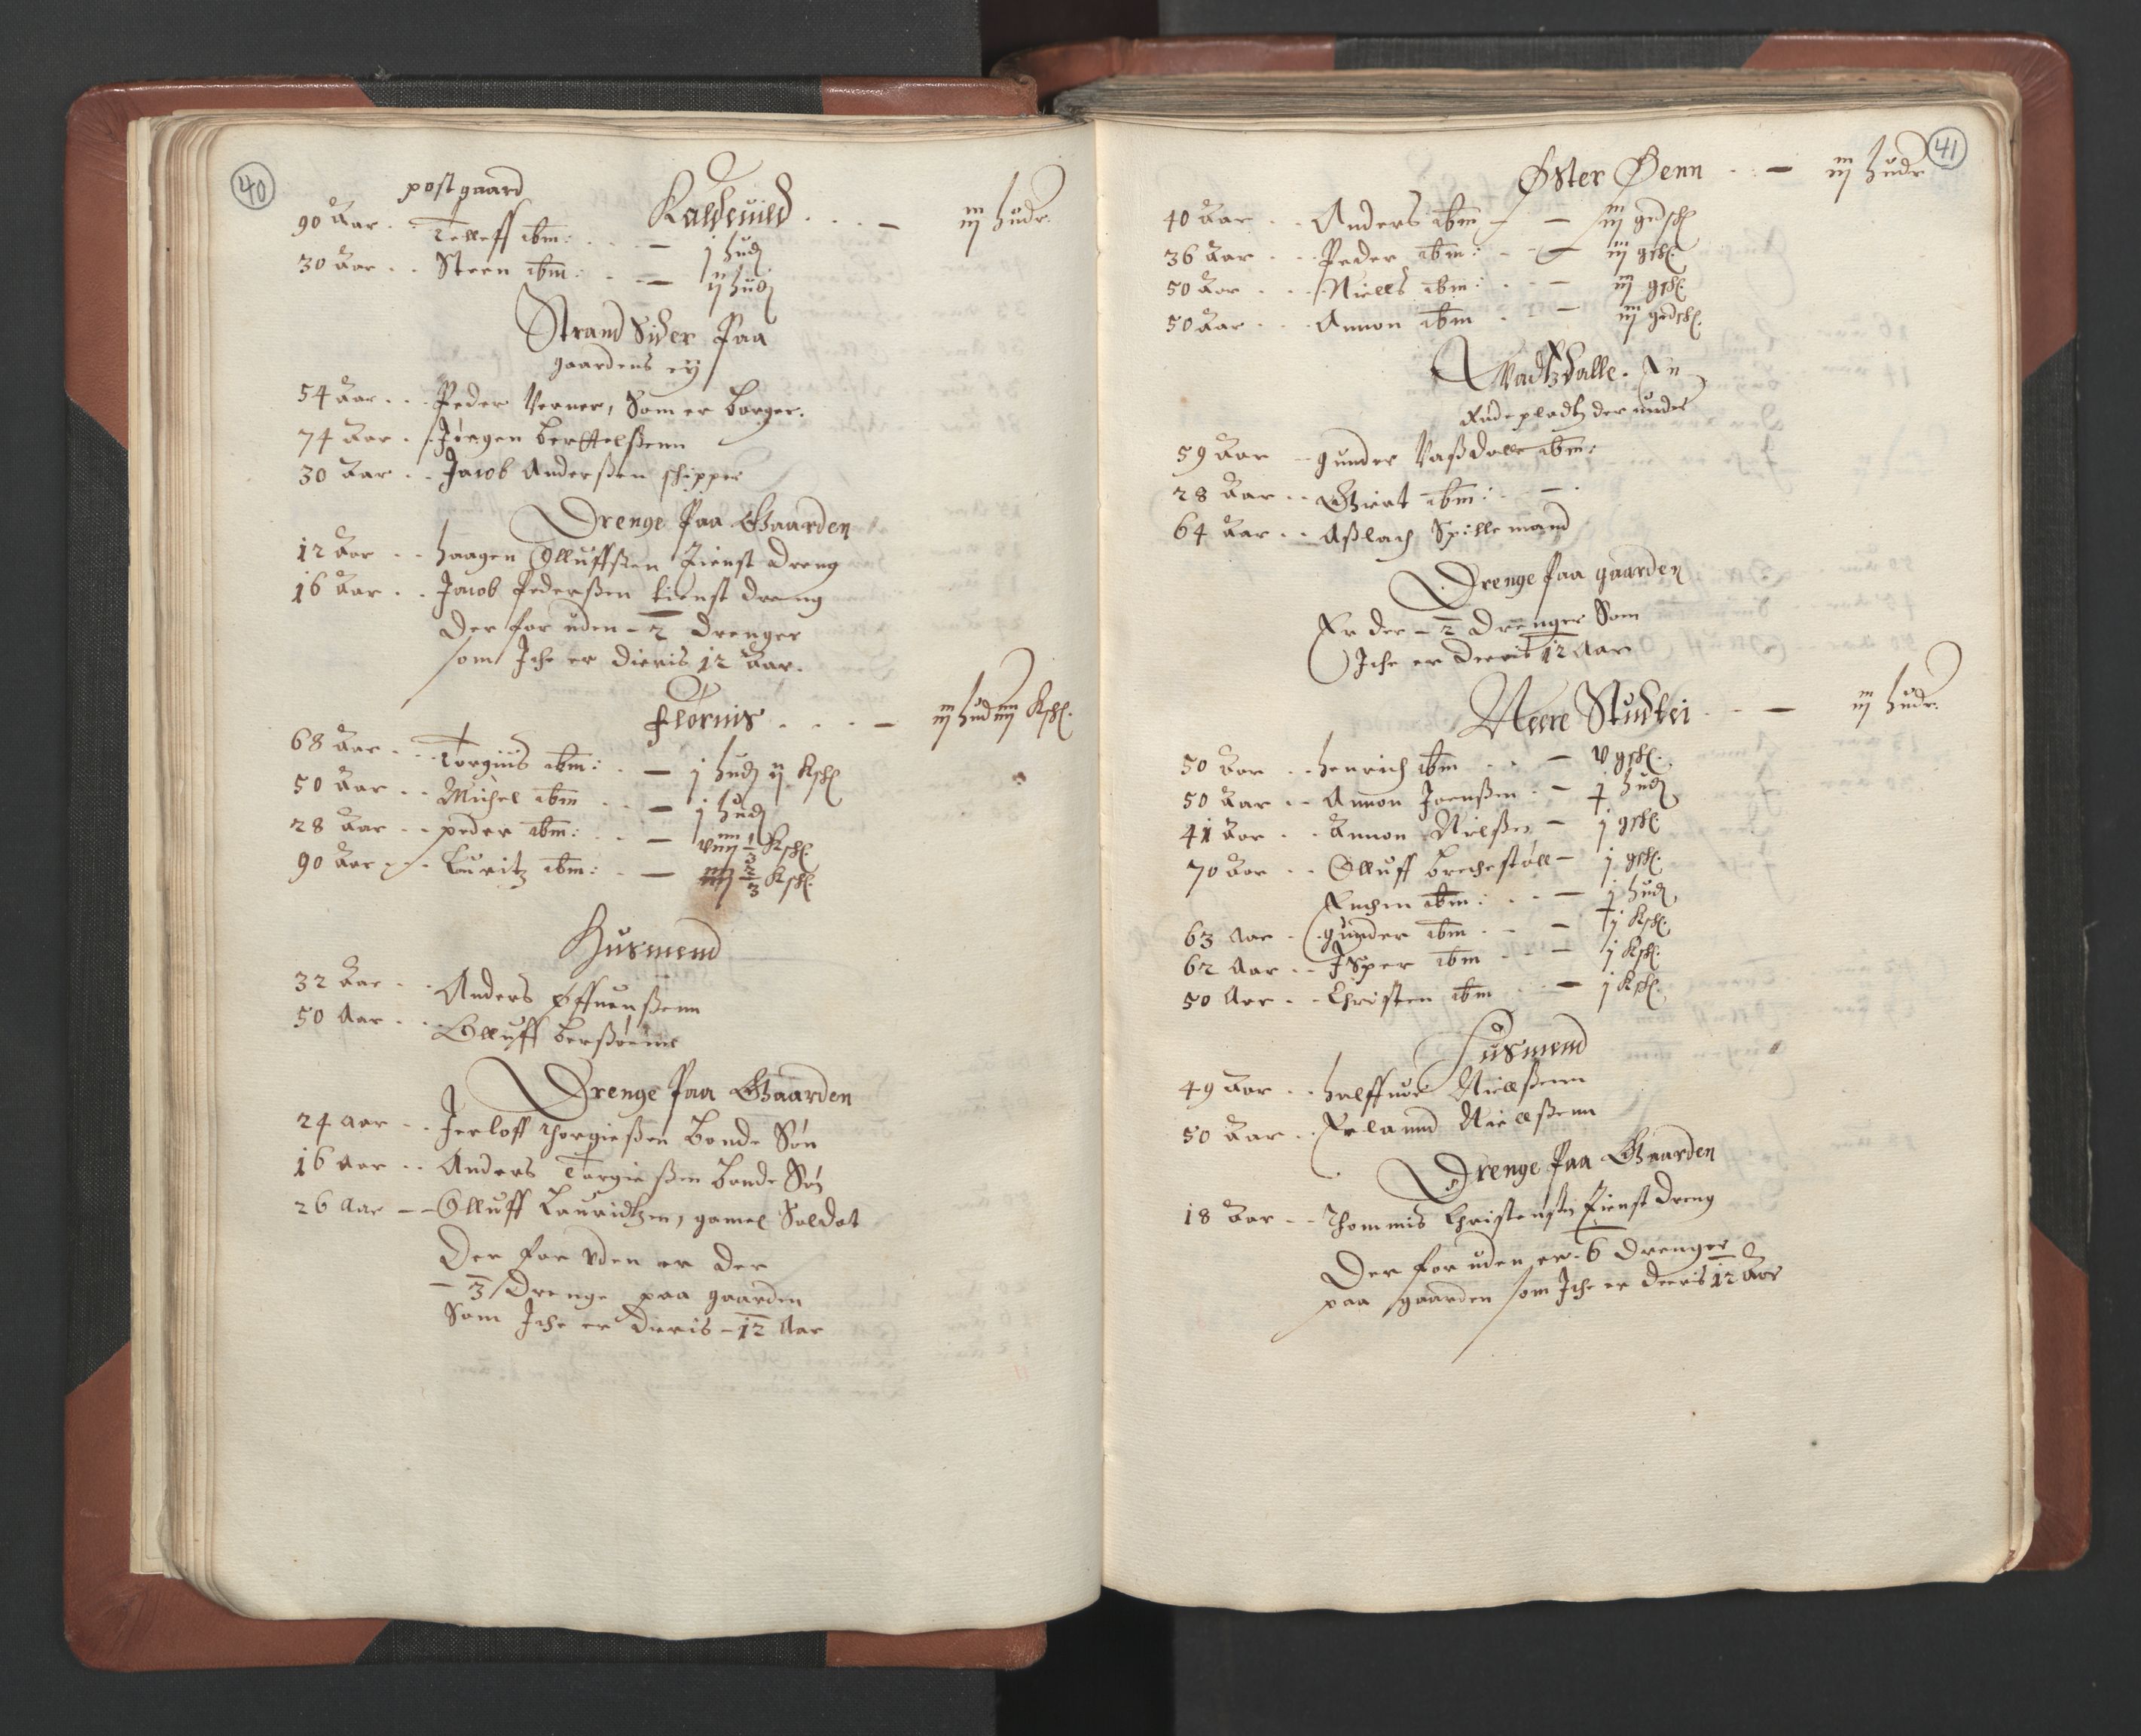 40
post gaard
Kaldeuild . . . — iij hudr.
90 Aar . . Telleff ibm: . . . — j hud
30 Aar . . Steen ibm: . . — ij hud
Strand Sider Paa
gaardens eij
54 Aar . . . Peder Verner, Som er borger.
74 Aar . . Jørgen berttelßenn
30 Aar . . Jacob Anderßen schipper
Drenge Paa Gaarden
12 Aar . . haagen Olluffsen Tienst dreng
16 Aar . . Jacob Pederßen tienst dreng
Der for uden - 2 drenger
som Iche er dieris 12 Aar.
Flørnis . . . . — iij hud iiij Ksch.
68 Aar . . Torgius ibm: . — j hud ij Ksch
50 Aar . . Michel ibm . . — j hud
28 Aar . . peder ibm: . . — viiij 1/3 Ksch.
90 Aar . . Lauritz ibm: . — iiij 2/3 Ksch.
Husmend
32 Aar . . Anders Offuenßenn
50 Aar . . Olluff
Drenge Paa Gaarden
24 Aar . . Jerloff Thorgießen bonde Søn
16 Aar . . Anders Torgießen bonde Søn
26 Aar — Olluff Lauridtzen, gamel Soldat
Der for vden er der
— 3 / Drenge paa gaarden
Som Iche er dieris - 12 Aar
41
Øster Øenn . . — iij hudr
40 Aar . . Anders ibm — — iij gedsch
36 Aar . . Peder ibm: - - — iij gsch.
50 Aar . . . Niells ibm: . . — iij gsch.
50 Aar . . . Annon ibm . . — iij gedsch.
Vadtzdalle. En
ødepladtz der under
59 Aar — gunder Vaßdalle ibm:
28 Aar . . ibm: . — .
64 Aar . . Aßlach Spillemand
Drenge paa gaarden
Er der - 2 Drenger Som
Iche er dieris 12 Aar
Neere Studlei . . — iij hudr.
50 Aar . . henrich ibm . . — v gsch.
50 Aar . . Annon Joenßen . — j hud
41 Aar . . Annon Nielßen — j gsch.
70 Aar . . Olluff brechestøll — j gsch.
Enchen ibm: . . . — j hud
63 Aar . . gunder ibm . . — j Ksch.
62 Aar . . Jsper ibm . . . — j Ksch.
50 Aar . . Christen ibm . . — j Ksch.
Husmend
49 Aar . . halffuor Niellßenn
50 Aar . . Erlannd Niellßenn
Drenge Paa Gaarden
18 Aar — Thommis Christensen Tienst dreng
Der for uden er - 6 drenger
paa gaarden som Iche er dieris 12 Aar